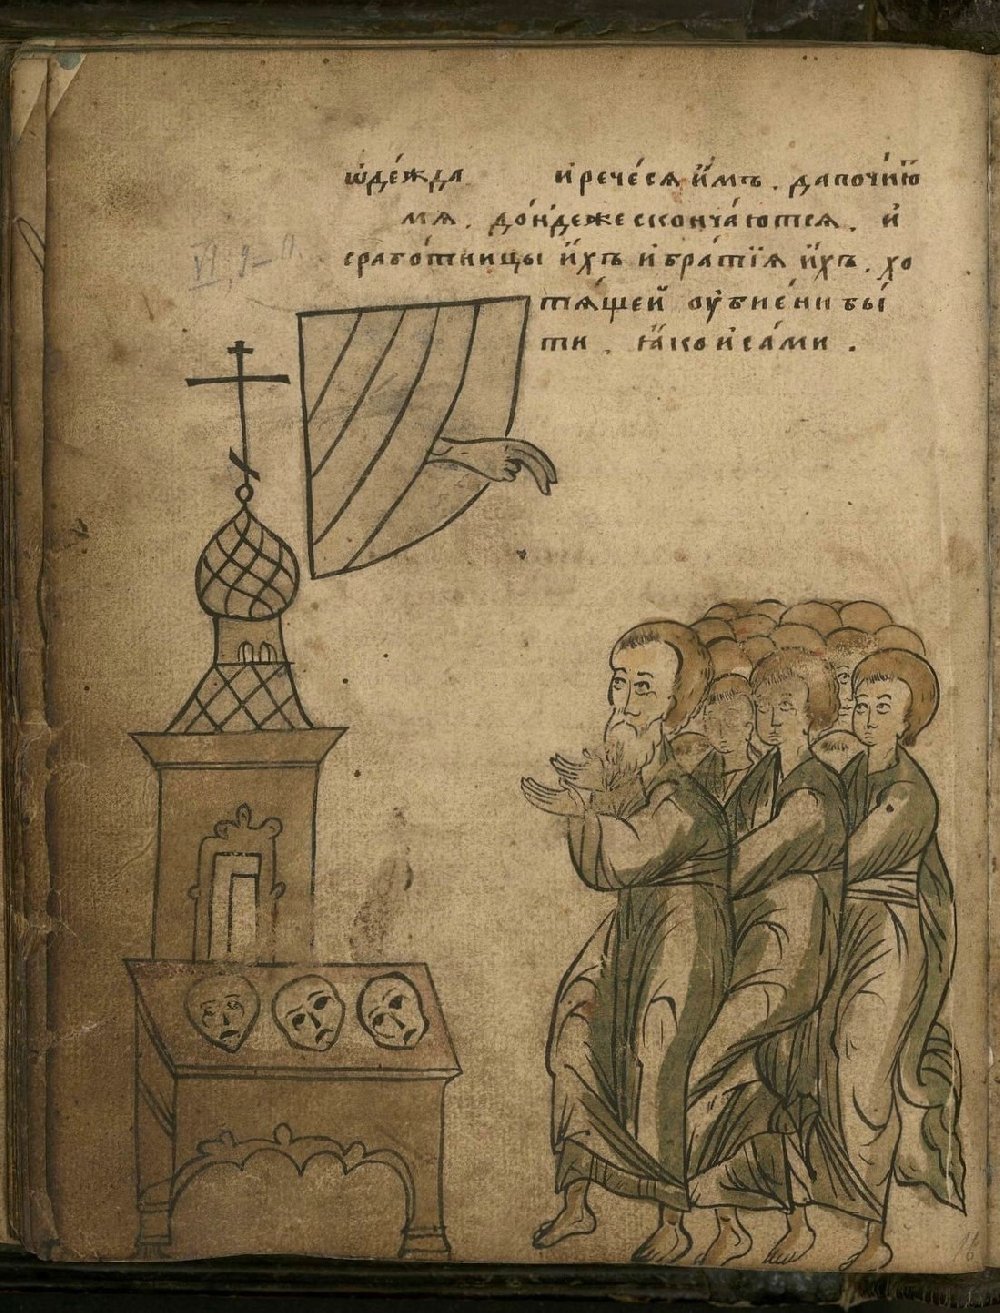 ѡ҆де́жда и҆рече́ся и҆́мъ. дапочі́ю
мя. до́ндежесконча́ются. и҆
срабо́тницы и҆́хъ и҆бра́тїя и҆́хъ. хо
тя́щеи҆ ᲂу҆бїе́ни бы́
ти. ꙗ҆́кои҆са́ми.
VI, 9–11.